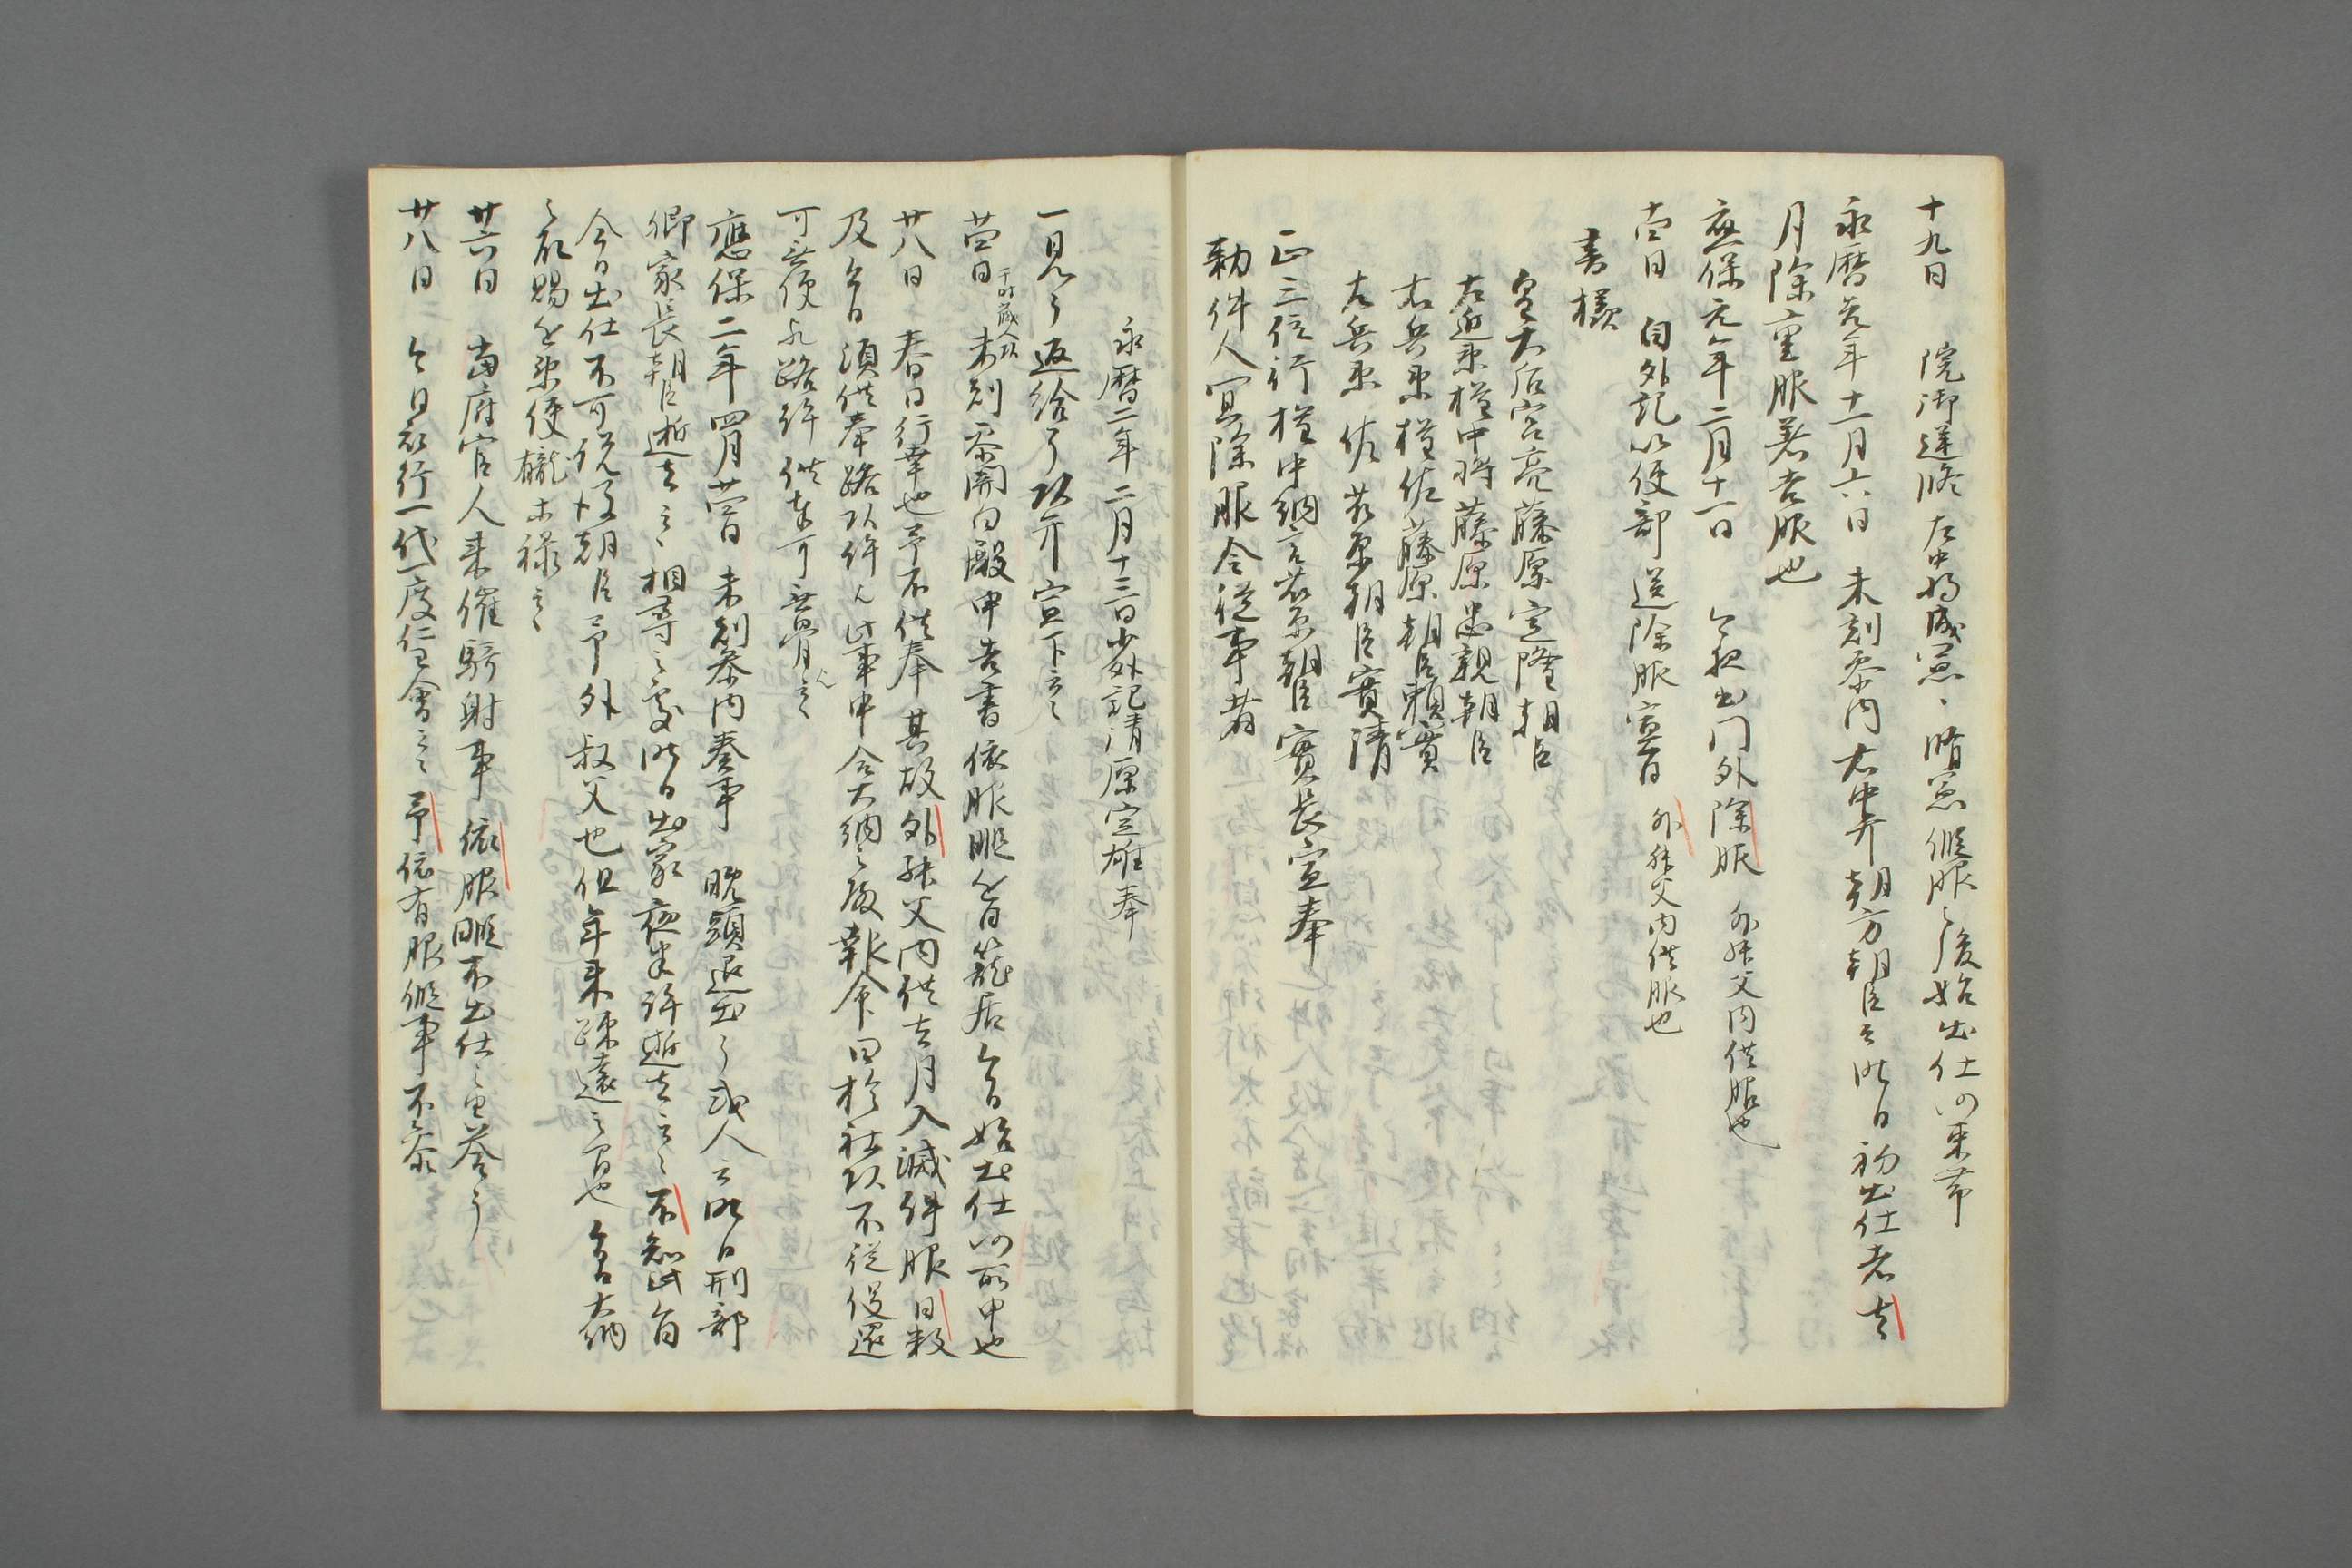 十九日 院御逆修左中将成憲、脩憲假服之後始出仕以束帯
永暦元年十一月六日 未刻参内右中弁朝方朝臣云昨日初出仕者去
月除重服著吉服也
應保元年二月十一日 今夜出門外除服 外叔父内供服也
十四日 自外記以使部送除服宣旨 外叔父内供服也
書樣
皇大后宮亮藤原定隆朝臣
左近衛権中将藤原忠親朝臣
右兵衛権佐藤原朝臣頼實
左兵衛佐藤原朝臣實清
正三位行権中納言藤原朝臣實長宣奉
勅件人宜除服令從事者
永暦二年二月十三日少外記清原定雄奉
一見了返給了頭弁宣下云々
廿四日 于時蔵人頭 未刻参関白殿申吉書依服暇近日籠居今日始出仕仍所申也
廿八日 春日行幸也予不供奉其故外叔父内供去月入滅件服日数
及今日須供奉路頭許也此事申合大納言殿報命曰於社頭不從役還
可無便於路許供奉可無骨云々
應保二年四月廿四日 未刻参内奏事 晩頭退出了或人云昨日刑部
卿家長朝臣逝去云々相尋之處昨日出家夜半許逝去云々不知此旨
今日出仕不可説々々朝臣予外叔父也但年来踈遠之間也 今日大納
言殿賜近衛使櫳木禄云々
廿六日 當府官人来催騎射事依服暇不出仕之由答了
廿八日 今日被行一代一度仁王會云々予依有服假事不参